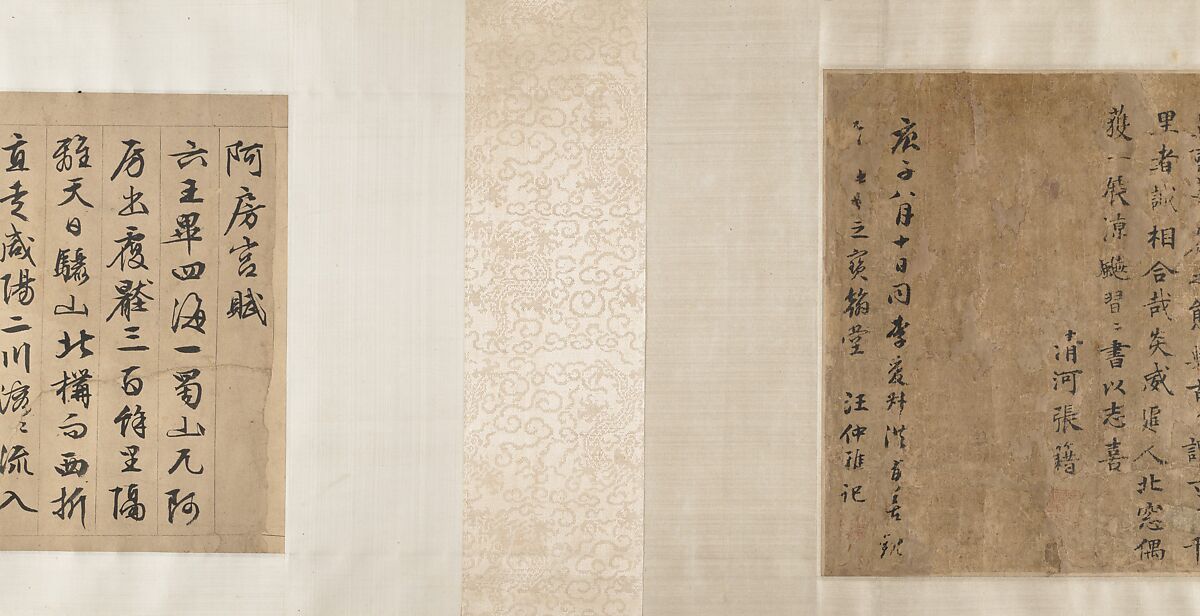 里者誠相合哉炎威逼人北窓偶
獲一展涼飈習〻書以志喜
清河張籍
庚子八月十日同李
之寶翰堂 汪仲雅記
阿房宮賦
六王畢四海一蜀山兀阿
房出覆壓三百餘里隔
離天日驪山北構而西折
直走咸陽二川溶〻流入